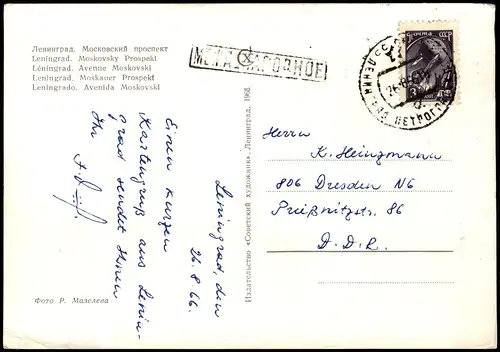 Ленинград. Московский проспект
Leningrad. Moskovsky Prospekt
Léningrad. Avenue Moskovski
Leningrad. Moskauer Prospekt
Leningrado. Avenida Moskovski
МЕЖДУНАРОДНОЕ
ПОЧТА СССР
Leningrad, den
26.8.66
Einen kurzen
Kartengruß aus Lenin-
grad sendet Ihnen
Ihr
Herrn
K. Heinzmann
806 Dresden N6
Prießnitzstr. 86
D.D.R.
Издательство «Советский художник». Ленинград. 1965
Фото Р. Мазелева